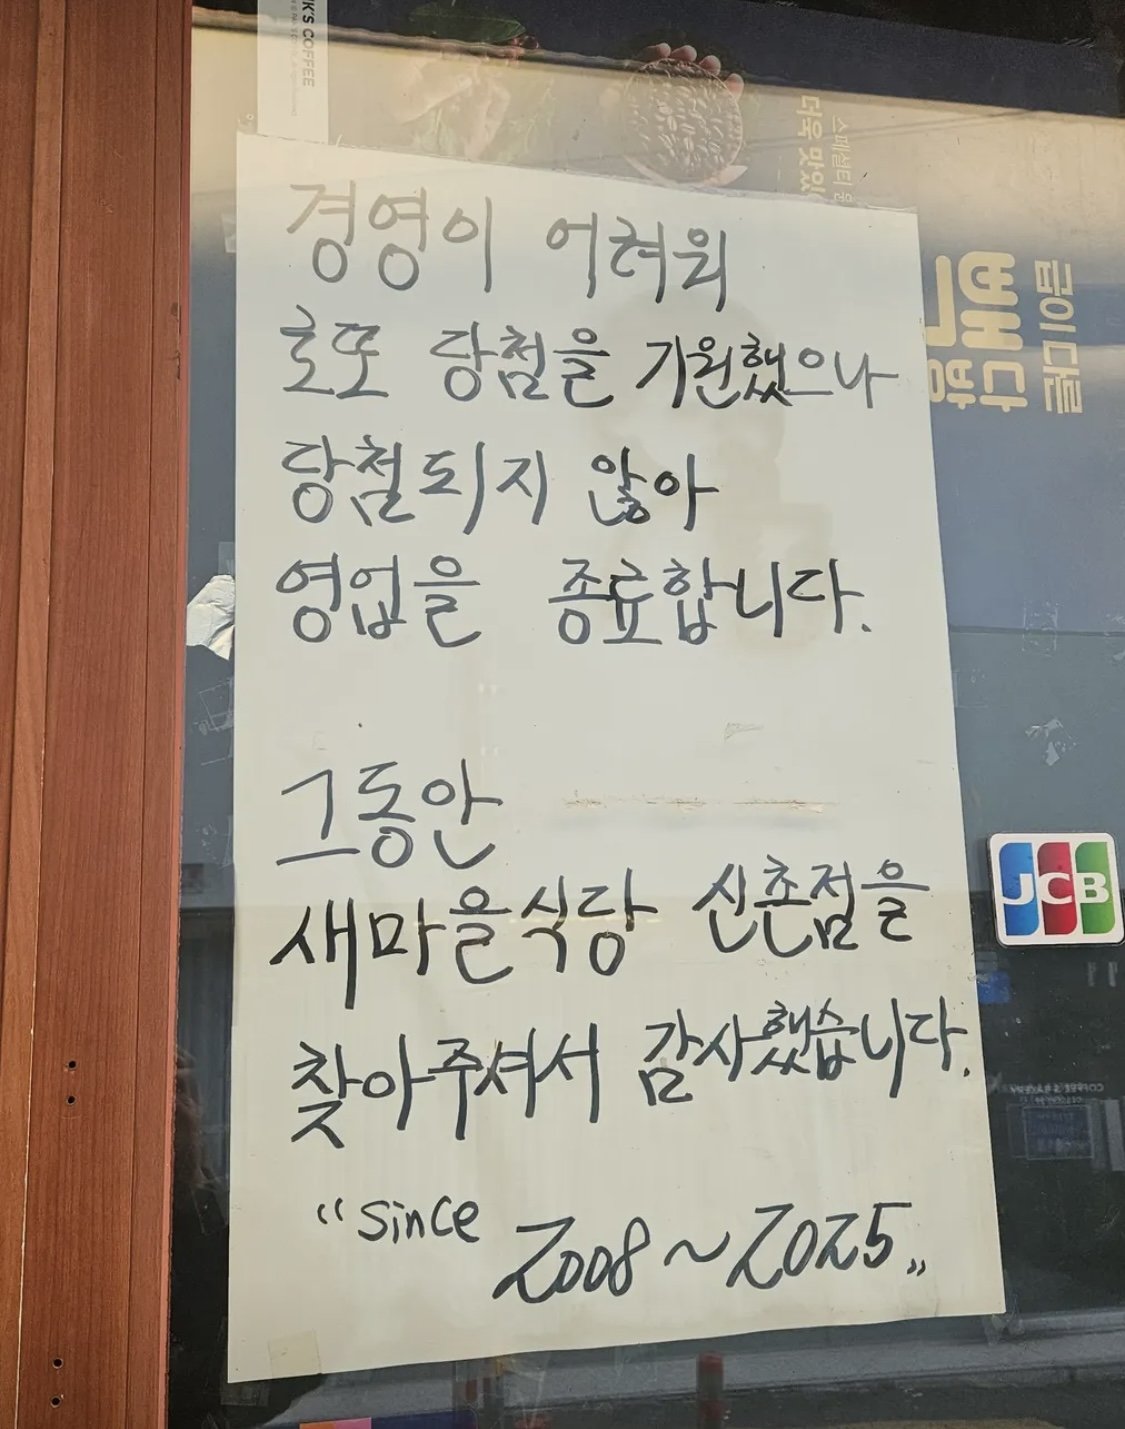 경영이 어려워
로또 당첨을 기원했으나
당첨되지 않아
영업을 종료합니다.
그동안
새마을식당 신촌점을
찾아주셔서 감사했습니다.
“since 2008~2025„
K'S COFFEE
스페셜티
더욱 맛있
급이 다른
빽다방
JCB